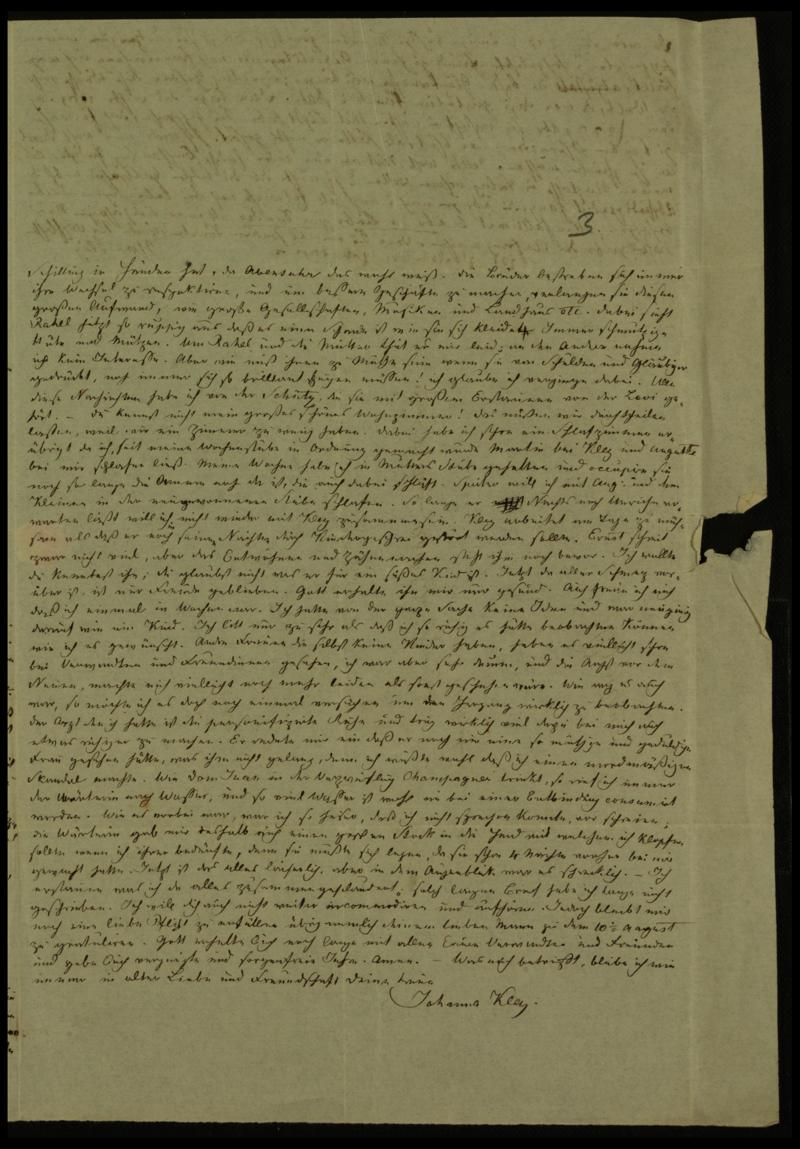 3.
Schilling in Händen hat, da Abensaba das mehr weiß. Die Brüder bestreben sich immer
ihre Wechsel zu respektiren, und um bessere Geschäfte zu machen, verlangen sie diesen
großen Aufwand, von große Gesellschaften, Musiken und Landhaus etc. dabei sieht
Rahel jetzt so ruppig aus daß es eine Schande ist wie sie sich kleidet. Immer schmutzige
Hüte und Mützen. Um Rahel und die Mutter thut es mir leid; an den Andern nehme
ich kein Interesse. Aber wie muß ihnen zu Muthe sein wenn sie von Schulden und Gläubiger
gedrückt, noch immer sich so brilliant zeigen müssen! ich glaube ich verginge dabei. Alle
diese Nachrichten habe ich von der Schütz, die sie mit großem Erstaunen von der Levi ge-
hört. — Du kennst nicht mein großes schönes Wohnzimmer! Das mußten wir durchtheilen
lassen, weil wir ein Zimmer zu wenig haben. Dabei habe ich schon ein Schlafzimmer er-
übrigt da ich, seit meine Wochenstube in Ordnung gemacht wurde Martin bei Kley und Auguste
bei mir schlafen ließ. Meine Wochen habe ich in Mutters Stube gehalten und occupire sie
noch so lange die Amme noch da ist, die auch dabei schläft. Später will ich mit Aug: und dem
Kleinen in der neugewonnenen Stube schlafen. So lange er Nachts noch Unruhe er-
warten läßt will ich nicht wieder mit Kley zusammensein. Kley arbeitet am Tage zu müh-
sam als daß er noch seine Nächte durch Kindergeschrei gestört werden sollte. Ernst schreit
zwar nicht viel, aber das Entwöhnen und Zähnemachen steht ihm noch bevor. Ich wollte
du kenntest ihn; du glaubst nicht was er für ein süßes Kind ist. Jetzt da aller Schmerz vor-
über ist, ist nur Freude geblieben. Gott erhalte ihn mir nur gesund. Auch freue ich mich
daß ich einmal in Wochen war. Ich hatte von der ganze Sache keine Ideen und war neugierig
darauf wie ein Kind. Ich litt nur zu sehr als daß ich so ruhig es hätte beobachten können
wie ich es gewünscht. Andre Frauen die selbst keine Kinder haben, haben es vielleicht schon
bei Verwandten und Freundinnen gesehen, ich war aber sehr dumm, und die Angst vor dem
Neuen, machte mich vielleicht noch mehr leiden als sonst geschehen wäre. Wie arg es auch
war, so möchte ich es doch noch einmal versuchen um den Hergang wirklich zu beobachten.
Der Arzt den ich hatte ist die personifizirte Ruhe und trug wirklich viel dazu bei mich auch
etwas ruhiger zu machen. Er redete mir ein daß er noch nie eine so muthige und geduldige
Frau gesehen hätte, was ihm nicht gelang, denn ich wußte recht daß ich einen mordmäßigen
Skandal machte. Wie Dom Juan in der Verzweiflung Champagner trinkt, so rief ich immer
der Wärterin nach Wasser, und so viel Wasser ist wohl nie bei einer Entbindung consumirt
worden. Wie es vorbei war, war ich so heiser, daß ich nicht sprechen konnte, vor schreien;
die Wärterin gab mir deshalb auch einen großen Stock in die Hand mit welchem ich klopfen
sollte wenn ich ihrer bedürfte, denn sie mußte sich legen, da sie schon 4 Nächte vorher bei mir
gewacht hatte. Jetzt ist das alles lächerlich, aber in dem Augenblick war es schrecklich. — Ich
erstaune was ich da alles zusammengeplaudert, solch langen Brief habe ich lange nicht
geschrieben. Ich will dich auch nicht weiter incommodiren und aufhören. Jedoch bleibt mir
noch eine liebe Pflicht zu erfüllen übrig nemlich deinem lieben Mann zu dem 10t August
zu gratuliren. Gott erhalte Dich noch lange mit allen Deinen Verwandten und Freunden
und gebe Euch vergnügte und sorgenfreie Jahre. Amen. — Was mich betrifft, bleibe ich wie
immer in alter Liebe und Freundschaft Deine treue
Johanna Kley.